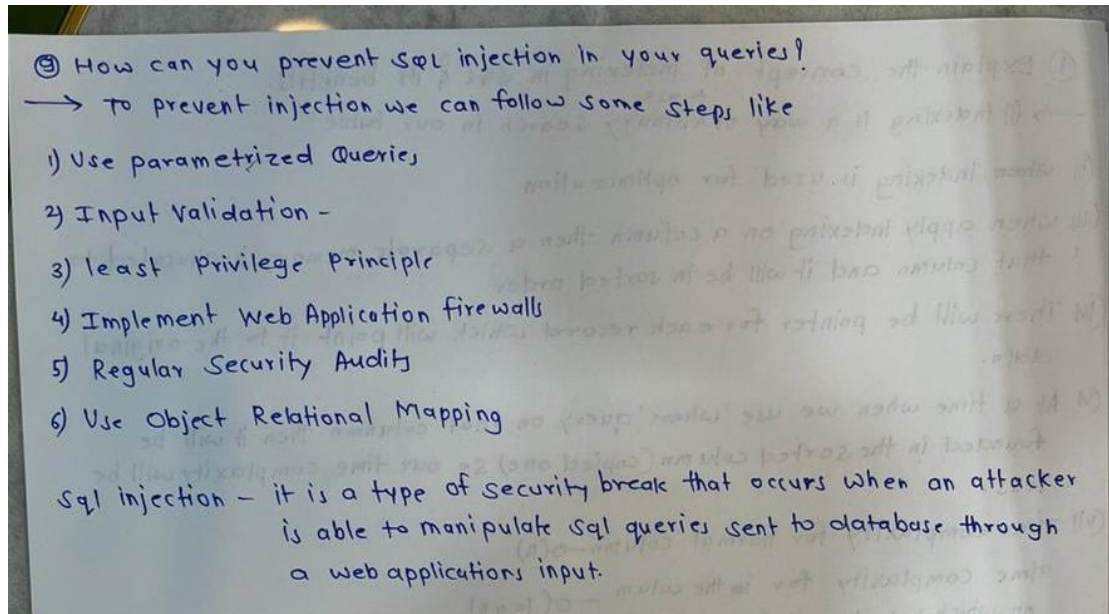 ⑨ How can you prevent SQL injection in your queries?
→ To prevent injection we can follow some steps like
1) Use parametrized Queries
2) Input Validation -
3) least Privilege Principle
4) Implement Web Application firewalls
5) Regular Security Audits
6) Use Object Relational Mapping
Sql injection - it is a type of security break that occurs when an attacker
is able to manipulate sql queries sent to database through
a web applications input.